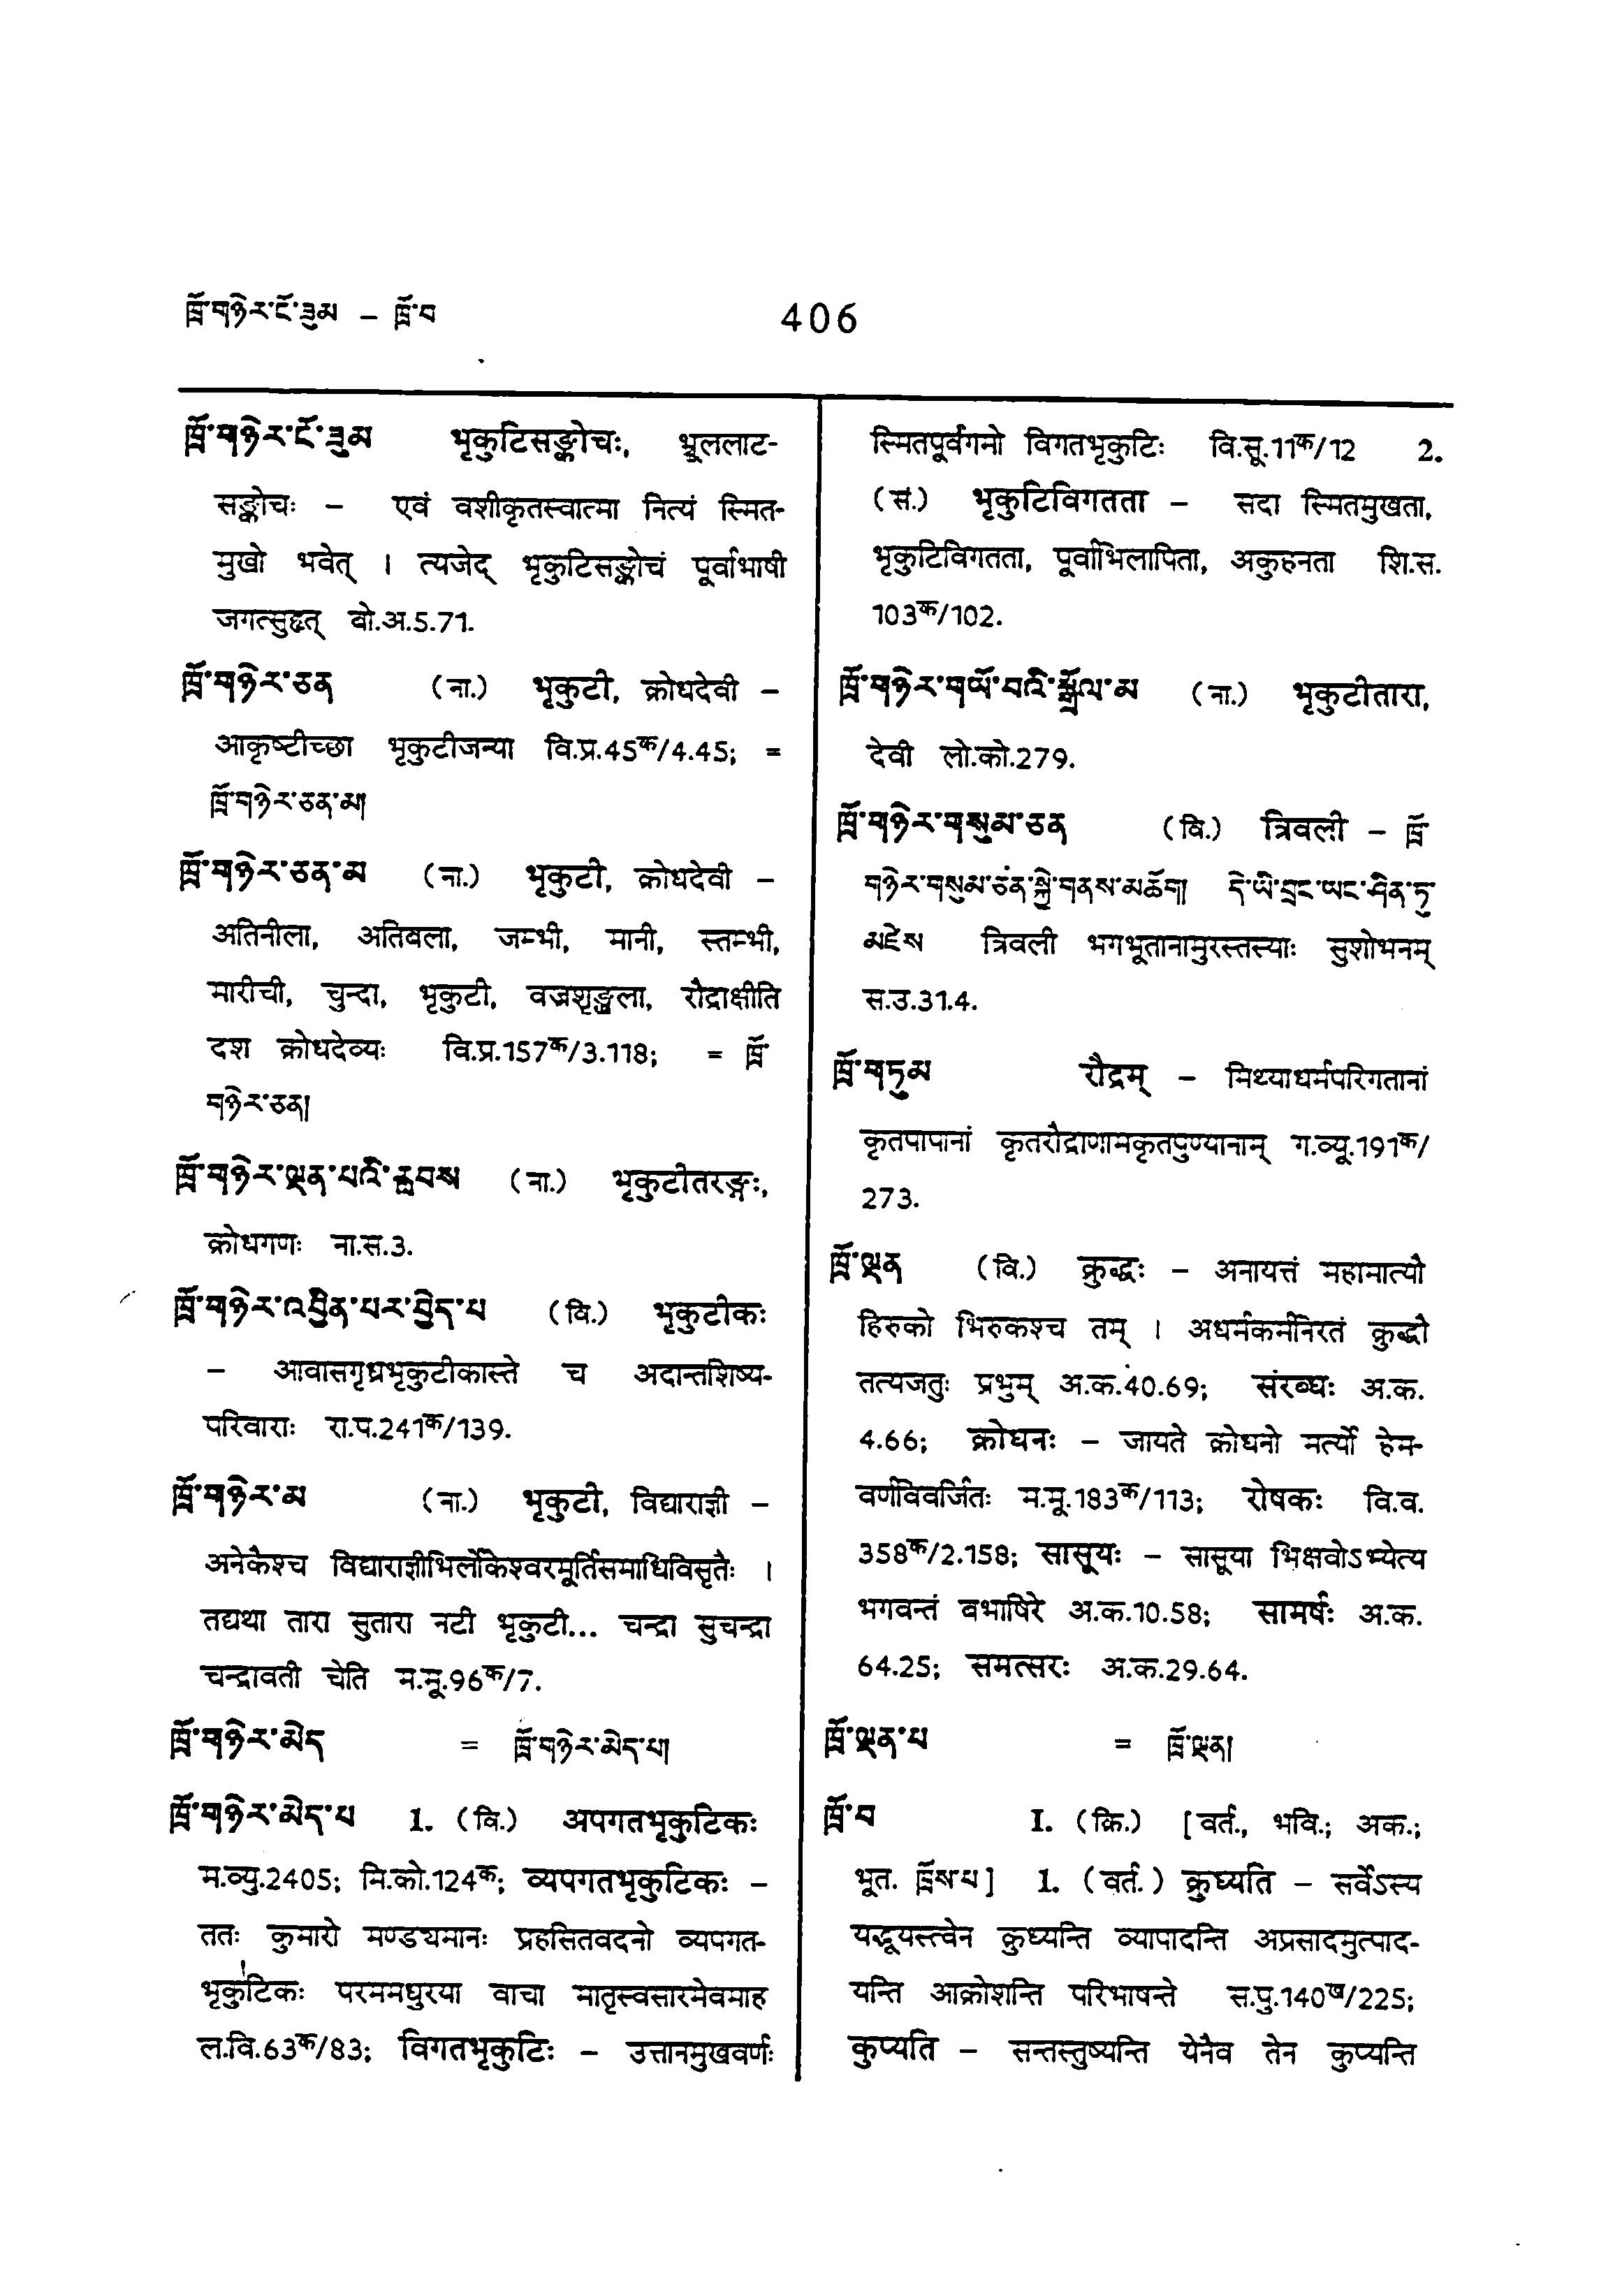 ཁྲོ་གཉེར་ངོ་ཟུམ – ཁྲོ་བ
406
ཁྲོ་གཉེར་ངོ་ཟུམ भृकुटिसङ्कोचः, भ्रूललाट-
सङ्कोचः – एवं वशीकृतस्वात्मा नित्यं स्मित-
मुखो भवेत् । त्यजेद् भृकुटिसङ्कोचं पूर्वाभाषी
जगत्सुहृत् बो.अ.5.71.
ཁྲོ་གཉེར་ཅན (ना.) भृकुटी, क्रोधदेवी –
आकृष्टीच्छा भृकुटीजन्या वि.प्र.45क/4.45; =
ཁྲོ་གཉེར་ཅན་མ།
ཁྲོ་གཉེར་ཅན་མ (ना.) भृकुटी, क्रोधदेवी –
अतिनीला, अतिबला, जम्भी, मानी, स्तम्भी,
मारीची, चुन्दा, भृकुटी, वज्रशृङ्खला, रौद्राक्षीति
दश क्रोधदेव्यः वि.प्र.157क/3.118; = ཁྲོ་
གཉེར་ཅན།
ཁྲོ་གཉེར་ལྡན་པའི་རྦ་རླབས (ना.) भृकुटीतरङ्गः,
क्रोधगणः ना.स.3.
ཁྲོ་གཉེར་འབྱིན་པར་བྱེད་པ (वि.) भृकुटीकः
– आवासगृध्रभृकुटीकास्ते च अदान्तशिष्य-
परिवाराः रा.प.241क/139.
ཁྲོ་གཉེར་མ (ना.) भृकुटी, विद्याराज्ञी –
अनेकैश्च विद्याराज्ञीभिर्लोकेश्वरमूर्तिसमाधिविसृतैः ।
तद्यथा तारा सुतारा नटी भृकुटी... चन्द्रा सुचन्द्रा
चन्द्रावती चेति म.मू.96क/7.
ཁྲོ་གཉེར་མེད = ཁྲོ་གཉེར་མེད་པ།
ཁྲོ་གཉེར་མེད་པ 1. (वि.) अपगतभृकुटिकः
म.व्यु.2405; मि.को.124क; व्यपगतभृकुटिकः –
ततः कुमारो मण्ड्यमानः प्रहसितवदनो व्यपगत-
भृकुटिकः परममधुरया वाचा मातृस्वसारमेवमाह
ल.वि.63क/83; विगतभृकुटिः – उत्तानमुखवर्णः
स्मितपूर्वगमो विगतभृकुटिः वि.सू.11क/12 2.
(सं.) भृकुटिविगतता – सदा स्मितमुखता,
भृकुटिविगतता, पूर्वाभिलापिता, अकुहनता शि.स.
103क/102.
ཁྲོ་གཉེར་གཡོ་བའི་སྒྲོལ་མ (ना.) भृकुटीतारा,
देवी लो.को.279.
ཁྲོ་གཉེར་གསུམ་ཅན (वि.) त्रिवली – ཁྲོ་
གཉེར་གསུམ་ཅན་སྐྱེ་གནས་མཆོག། དེ་ཡི་བྲང་ཡང་ཤིན་ཏུ་
མཛེས त्रिवली भगभूतानामुरस्तस्याः सुशोभनम्
स.उ.31.4.
ཁྲོ་གཏུམ रौद्रम् – मिथ्याधर्मपरिगतानां
कृतपापानां कृतरौद्राणामकृतपुण्यानाम् ग.व्यू.191क/
273.
ཁྲོ་ལྡན (वि.) क्रुद्धः – अनायत्तं महामात्यौ
हिरुको भिरुकश्च तम् । अधर्मकर्मनिरतं क्रुद्धौ
तत्यजतुः प्रभुम् अ.क.40.69; संरब्धः अ.क.
4.66; क्रोधनः – जायते क्रोधनो मर्त्यो हेम-
वर्णविवर्जितः म.मू.183क/113; रोषकः वि.व.
358क/2.158; सासूयः – सासूया भिक्षवोऽभ्येत्य
भगवन्तं बभाषिरे अ.क.10.58; सामर्षः अ.क.
64.25; समत्सरः अ.क.29.64.
ཁྲོ་ལྡན་པ = ཁྲོ་ལྡན།
ཁྲོ་བ I. (क्रि.) [वर्त., भवि.; अक.;
भूत. ཁྲོས་པ] 1. (वर्त.) क्रुध्यति – सर्वेऽस्य
यद्भूयस्त्वेन क्रुध्यन्ति व्यापादन्ति अप्रसादमुत्पाद-
यन्ति आक्रोशन्ति परिभाषन्ते स.पु.140ख/225;
कुप्यति – सन्तस्तुष्यन्ति येनैव तेन कुप्यन्ति